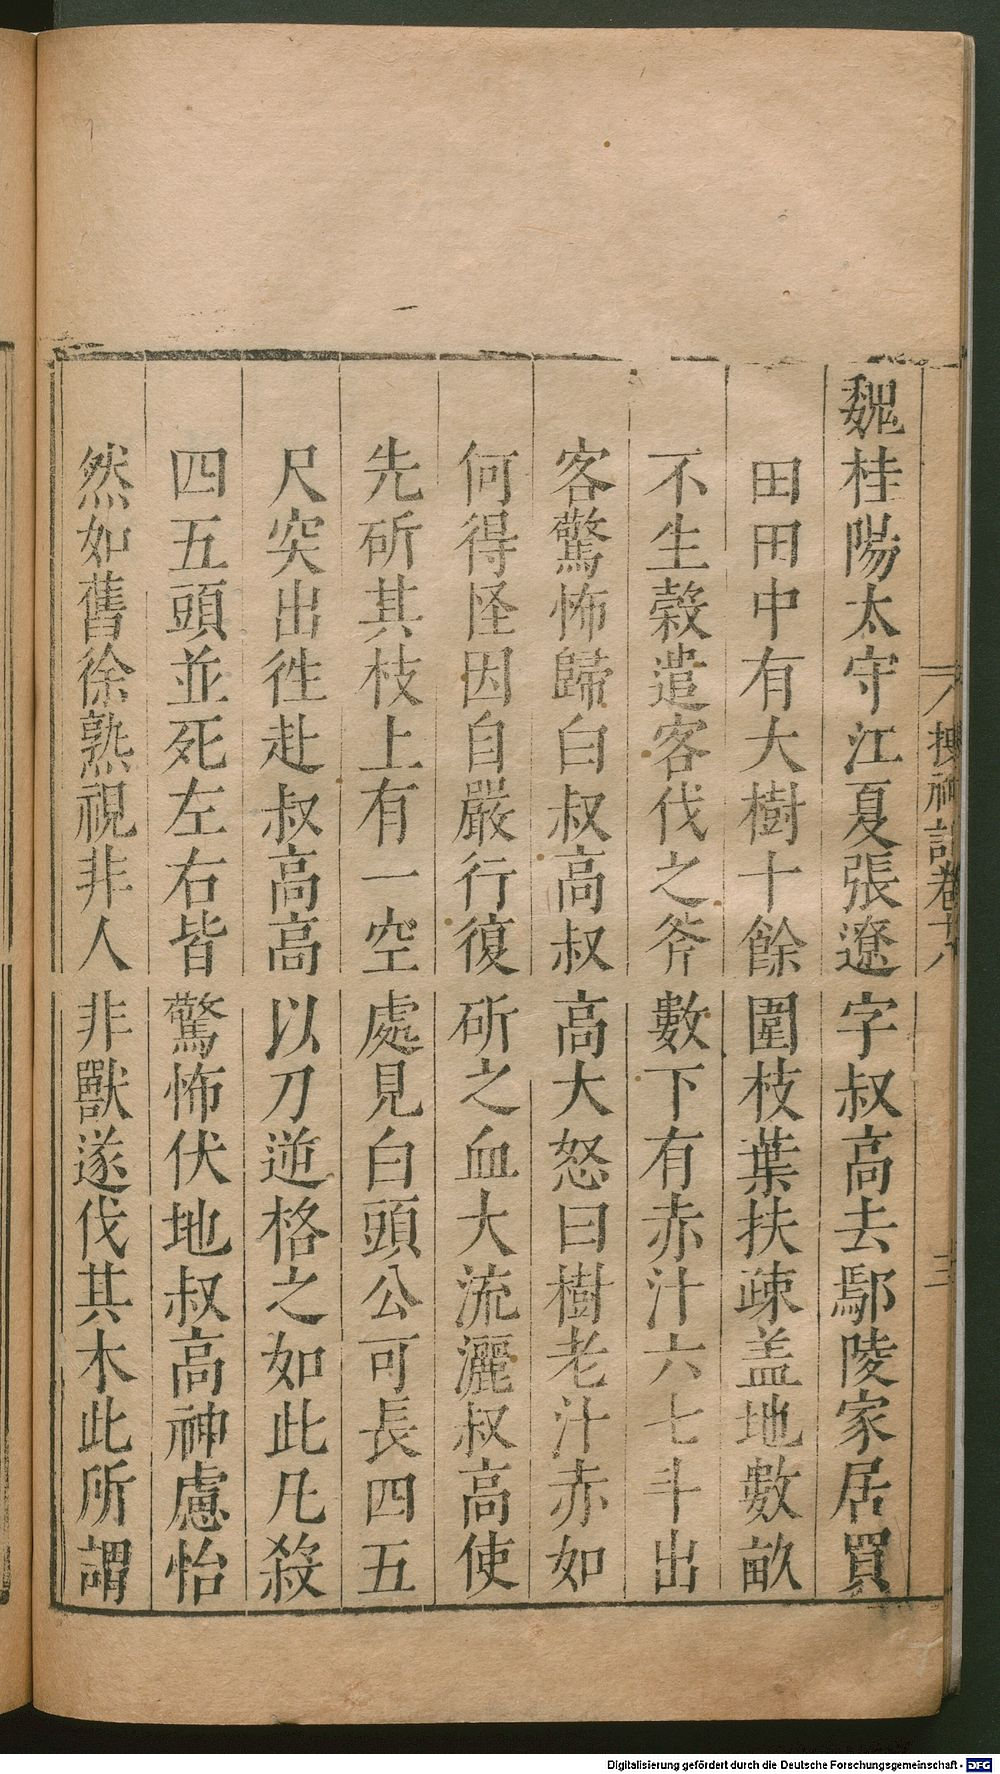 魏桂陽太守江夏張遼字叔高去鄢陵家居買
田田中有大樹十餘圍枝葉扶疎盖地數畝
不生穀遣客伐之斧數下有赤汁六七斗出
客驚怖歸白叔高叔高大怒曰樹老汁赤如
何得怪因自嚴行復斫之血大流灑叔高使
先斫其枝上有一空處見白頭公可長四五
尺突出徃赴叔高高以刀逆格之如此凡殺
四五頭並死左右皆驚怖伏地叔高神慮怡
然如舊徐熟視非人非獸遂伐其木此所謂
搜神記卷十八
三
Digitalisierung gefördert durch die Deutsche Forschungsgemeinschaft - DFG